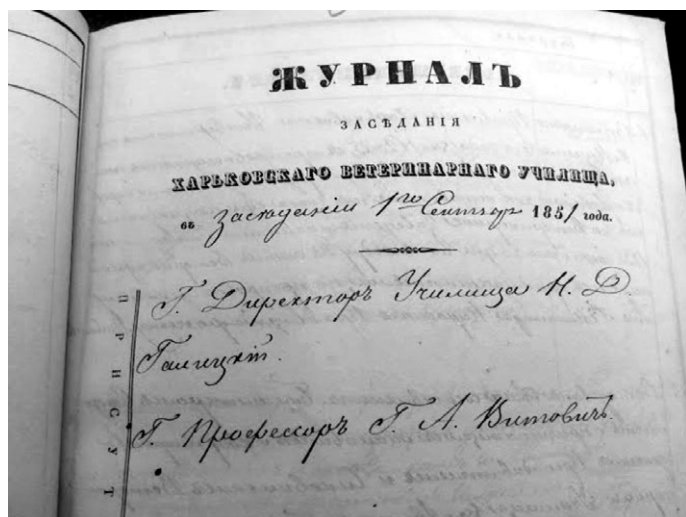 ЖУРНАЛЪ
ЗАСѢДАНІЯ
ХАРЬКОВСКАГО ВЕТЕРИНАРНАГО УЧИЛИЩА,
въ Засѣданіи 1го Сентябр 1851 года.
Г. Директоръ Училища Н. Д.
Галицкій.
Г. Профессоръ Г. А. Витовичъ.
ПРИСУТ